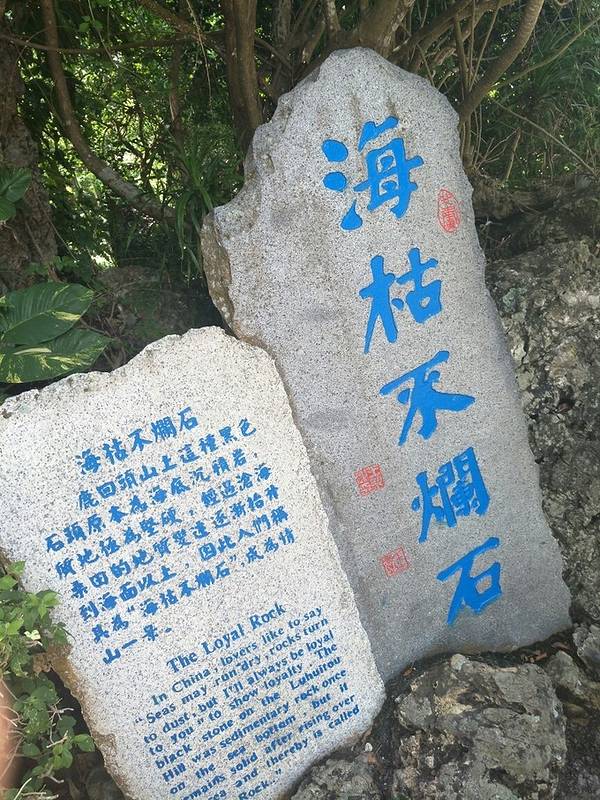 海枯不爛石
海枯不爛石
鹿回頭山上這種黑色
石頭原本為海底沉積岩，
質地極為堅硬，經過滄海
桑田的地質變遷逐漸抬升
到海面以上，因此人們稱
其為“海枯不爛石”，成為情
山一景。
The Loyal Rock
In China, lovers like to say
"Seas may run dry, rocks turn
to dust, but I'll always be loyal
to you" to show loyalty. The
black stone on the Luhuitou
Hill was sedimentary rock once
on the sea bottom, but it
remains solid after rising over
seas and thereby is called
Rock."